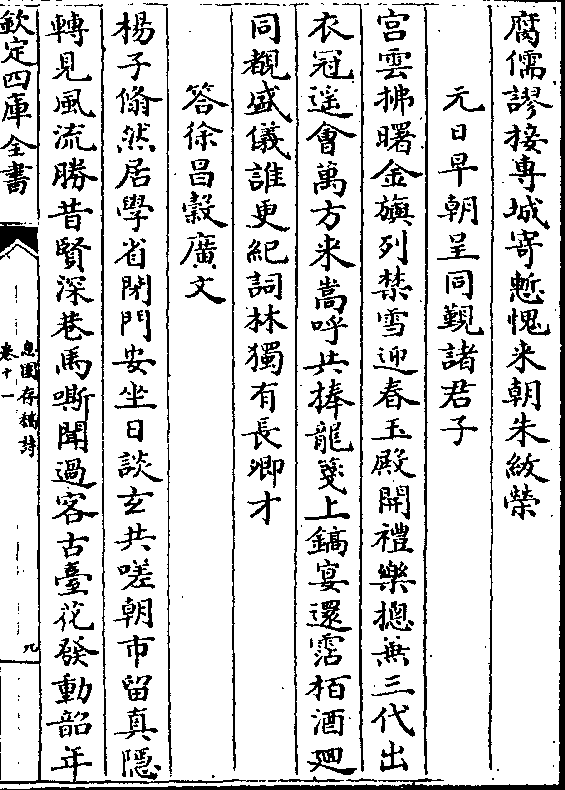 腐儒謬接專城寄慙愧来朝朱紱榮
元日早朝呈同覲諸君子
宫雲拂曙金旗列禁雪迎春玉殿開禮樂摠無三代出
衣冠遥會萬方来嵩呼共捧龍箋上鎬宴還霑栢酒廻
同覩盛儀誰更紀詞林獨有長卿才
答徐昌糓廣文
楊子翛然居學省閉門安坐日談玄共嗟朝市留真隱
轉見風流勝昔賢深巷馬嘶聞過客古臺花發動韶年
欽定四庫全書
息園存稿詩
卷十一
九